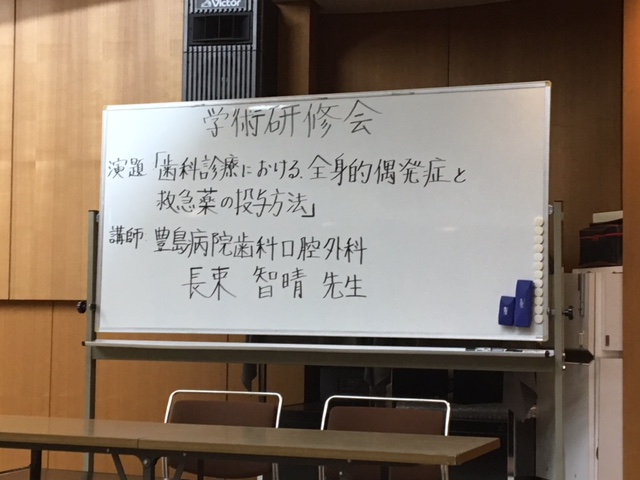 Victor
学術研修会
演題「歯科診療における、全身的偶発症と
救急薬の投与方法」
講師:豊島病院歯科口腔外科
長束 智晴 先生